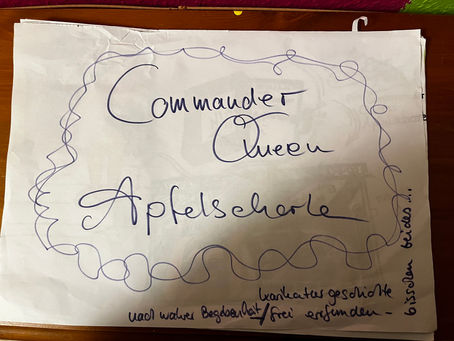 Commander
Queen
Apfelschorle
Karikatur geschichte
nach wahrer Begebenheit / frei erfunden -
bisschen beides ...